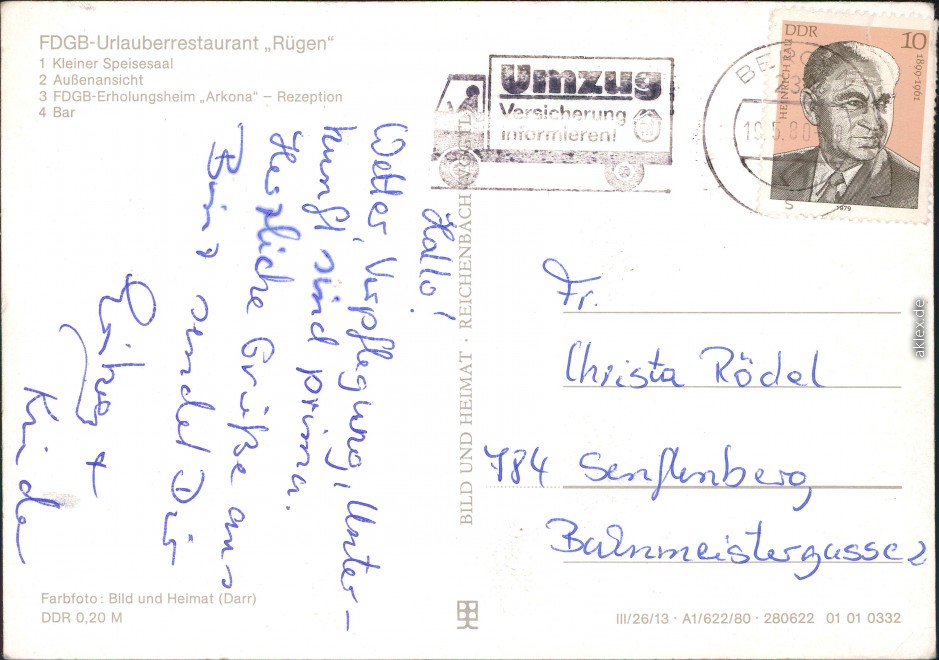 FDGB-Urlauberrestaurant „Rügen“
1 Kleiner Speisesaal
2 Außenansicht
3 FDGB-Erholungsheim „Arkona“ – Rezeption
4 Bar
Umzug
Versicherung
informieren!
DDR 10
HEINRICH RAU
1899-1961
1979
Hallo!
Wetter, Verpflegung, Unter-
kunft sind prima.
Herzliche Grüße aus
Binz sendet Dir
+
BILD UND HEIMAT · REICHENBACH
Fr.
Christa Rödel
784 Senftenberg
Bahnmeistergasse 2
Farbfoto: Bild und Heimat (Darr)
DDR 0,20 M
III/26/13 · A1/622/80 · 280622 01 01 0332
aklex.de